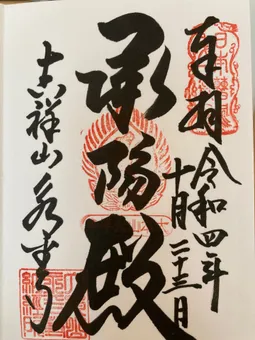 奉拝
令和四年
十月二十三日
承陽殿
吉祥山永平寺